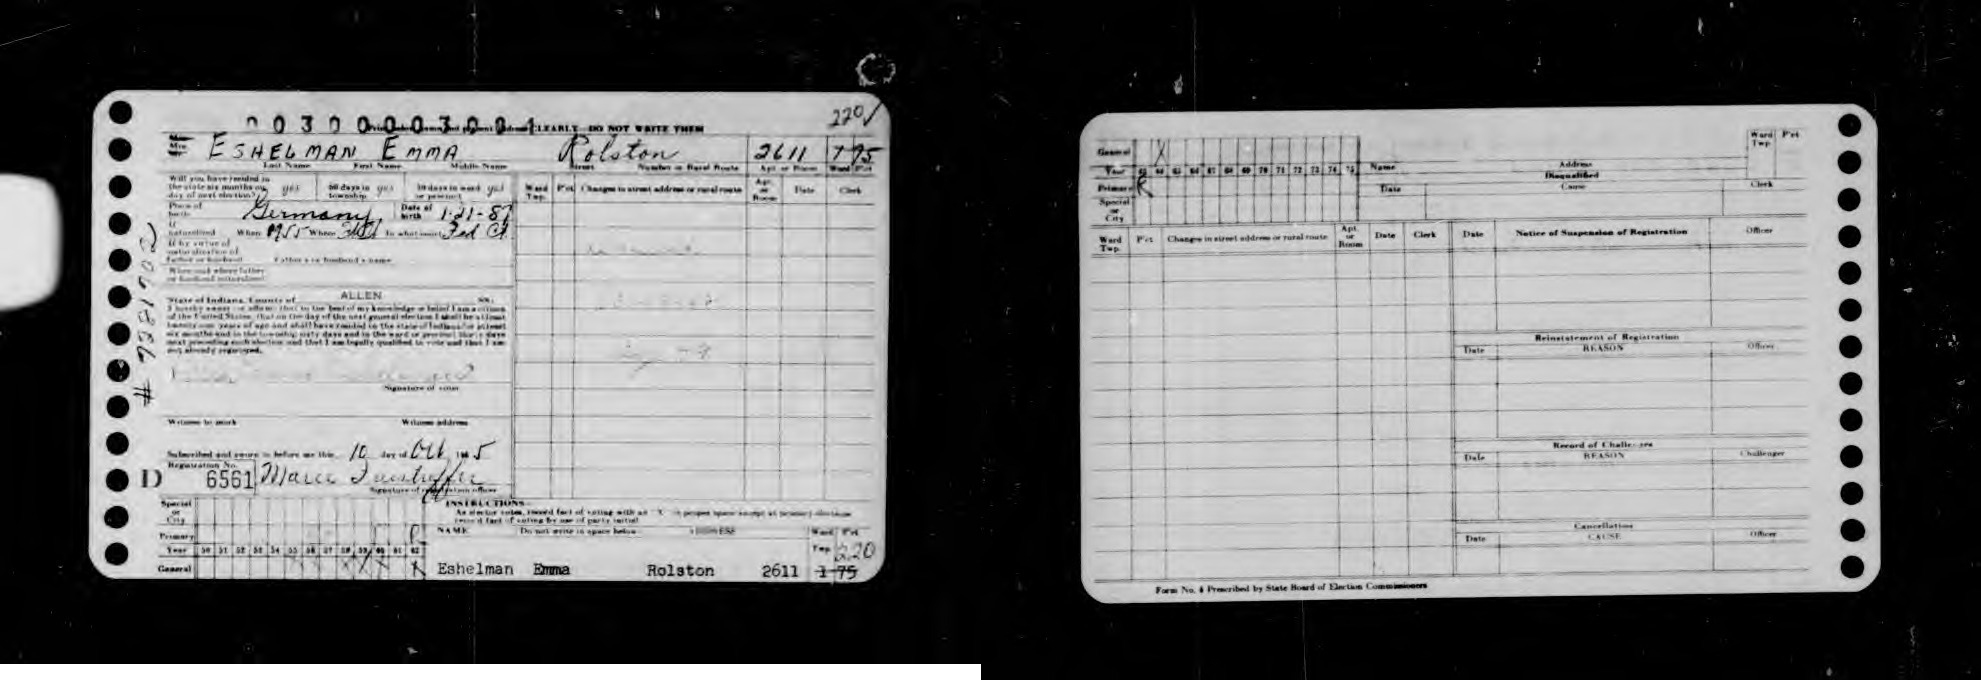 220✓
CLEARLY DO NOT WRITE THEM
Mrs.
ESHELMAN EMMA Rolston 2611 1 75
Last Name First Name Middle Name Street Number or Rural Route Apt. or Room Ward P'ct
Will you have resided in
the state six months on yes 60 days in yes 30 days in ward yes
day of next election? township or precinct
Ward Twp. P'ct Changes in street address or rural route Apt. or Room Date Clerk
Place of birth Germany Date of birth 1-21-87
If naturalized When 1955 Where In what court Fed Ct
If by virtue of
naturalization of
father or husband Father's or husband's name
When and where father
or husband naturalized
# 7381702
State of Indiana, County of ALLEN SS:
I hereby swear or affirm that to the best of my knowledge or belief I am a citizen
of the United States, that on the day of the next general election I shall be at least
twenty-one years of age and shall have resided in the state of Indiana for at least
six months and in the township sixty days and in the ward or precinct thirty days
next preceding such election and that I am legally qualified to vote and that I am
not already registered.
Signature of voter
Witness to mark Witness address
Subscribed and sworn to before me this 10 day of Oct 1955
Registration No.
D 6561
Signature of registration officer
Special or City
Primary R
Year 50 51 52 53 54 55 56 57 58 59 60 61 62
General X X X X
INSTRUCTIONS
As elector votes, record fact of voting with an "X" in proper space except at primary elections
record fact of voting by use of party initial
NAME Do not write in space below ADDRESS Ward P'ct
Twp. 220
Eshelman Emma Rolston 2611 1 75
General X
Year 63 64 65 66 67 68 69 70 71 72 73 74 75
Primary R
Special or City
Name Address Ward Twp. P'ct
Disqualified
Date Cause Clerk
Ward Twp. P'ct Changes in street address or rural route Apt. or Room Date Clerk
Date Notice of Suspension of Registration Officer
Reinstatement of Registration
Date REASON Officer
Record of Challenges
Date REASON Challenger
Cancellation
Date CAUSE Officer
Form No. 4 Prescribed by State Board of Election Commissioners